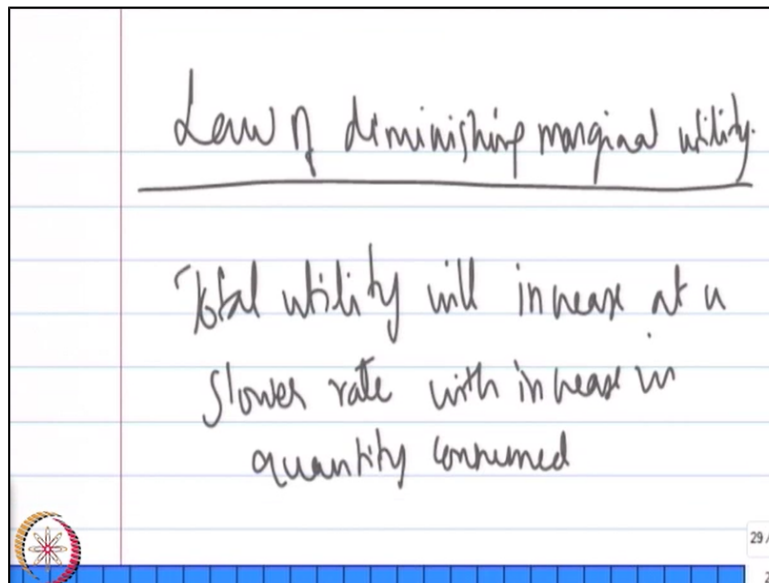 Law of diminishing marginal utility.
Total utility will increase at a
slower rate with increase in
quantity consumed
29/